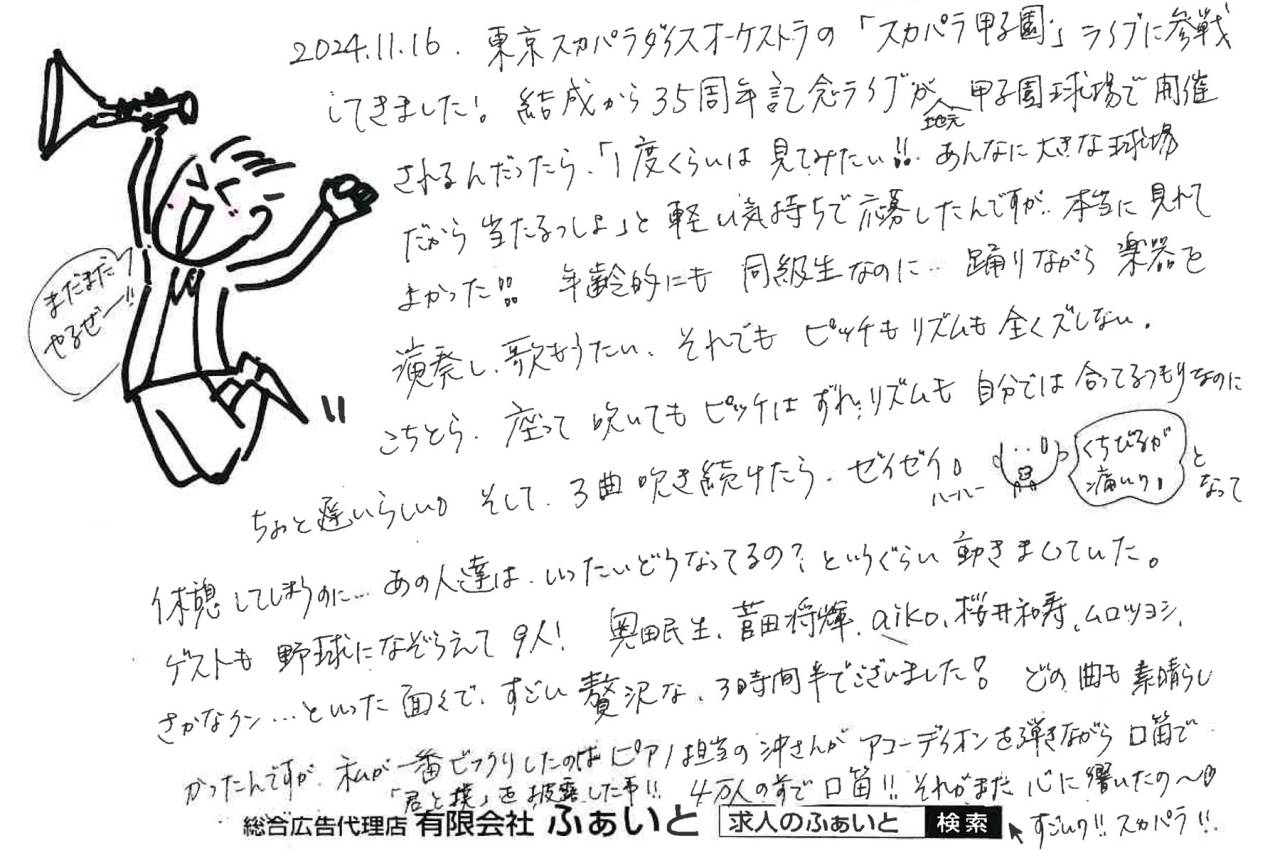 2024.11.16. 東京スカパラダイスオーケストラの「スカパラ甲子園」ライブに参戦
してきました! 結成から35周年記念ライブが地元甲子園球場で開催
されるんだったら、「1度くらいは見てみたい!!. あんなに大きな球場
だから当たるっしょ」と軽い気持ちで応募したんですが.. 本当に見れて
よかった!! 年齢的にも同級生なのに… 踊りながら楽器を
演奏し、歌もうたい、それでもピッチもリズムも全くズレない。
こちとら、座って吹いてもピッチはずれ、リズムも自分では合ってるつもりなのに
ちょっと遅いらしい。そして、3曲吹き続けたら、ゼイゼイ。
ハーハー
くちびるが
痛いy。
となって
休憩してしまうのに… あの人達は、いったいどうなってるの?というぐらい動きまくていた。
ゲストも野球になぞらえて9人! 奥田民生、菅田将暉、aiko、桜井和寿、ムロツヨシ、
さかなクン…といった面々で、すごい贅沢な、3時間半でございました! どの曲も素晴らし
かったんですが、私が一番ビックリしたのはピアノ担当の沖さんがアコーディオンを弾きながら口笛で
「君と僕」を披露した事!! 4万人の前で口笛!! それがまた心に響いたの〜
すごいy!! スカパラ!!
まだまだ
やるぜー!!
総合広告代理店 有限会社 ふぁいと 求人のふぁいと 検索